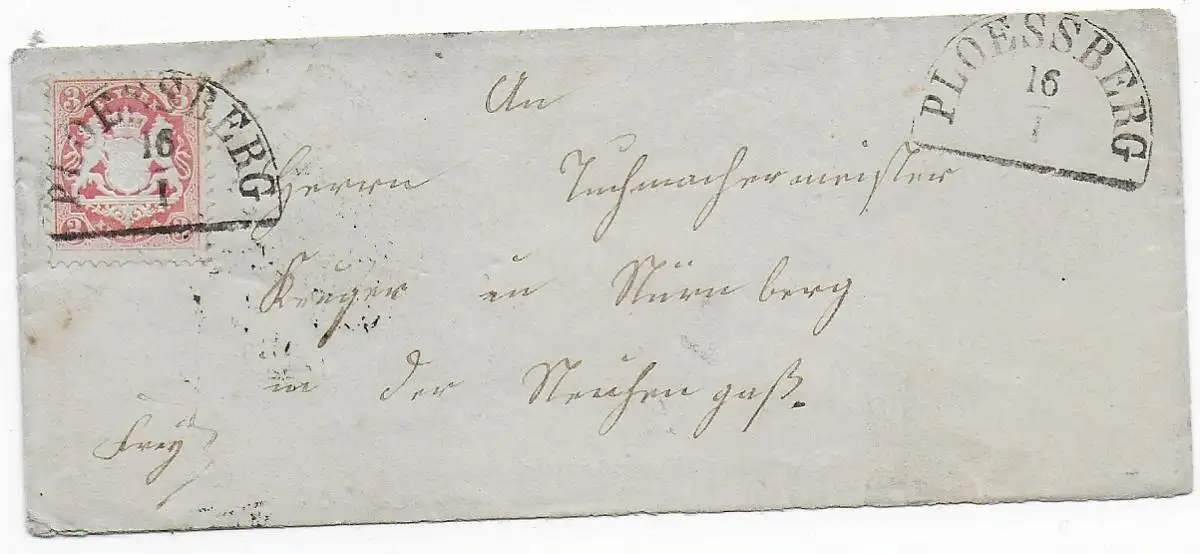 3 3
3 3
PLOESSBERG
16
1
PLOESSBERG
16
1
An
Herrn Tuchmachermeister
Krüger in Nürnberg
in der
Frey